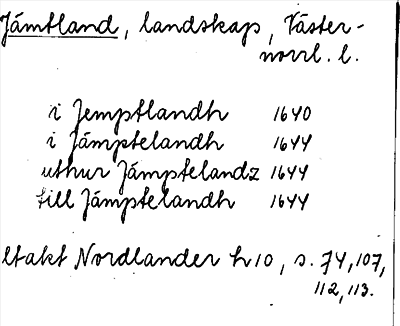 Jämtland, landskap, Väster-
norrl. l.
i Jemptlandh 1640
i Jämptelandh 1644
uthur Jämptelandz 1644
till Jämptelandh 1644
Utakt Nordlander h 10, s. 74, 107,
112, 113.